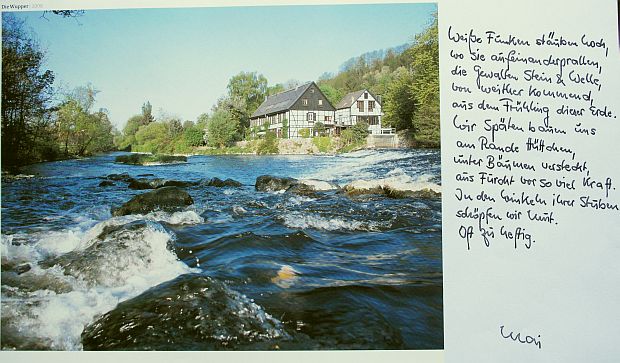 Die Wupper | 2008
Weiße Funken stäuben hoch,
wo sie aufeinanderprallen,
die Gewalten Stein & Welle,
von weither kommend,
aus dem Frühling dieser Erde.
Wir Späten bauen uns
am Rande Hüttchen,
unter Bäumen versteckt,
aus Furcht vor so viel Kraft.
In den Winkeln ihrer Stuben
schöpfen wir Mut.
Oft zu heftig.
Mai